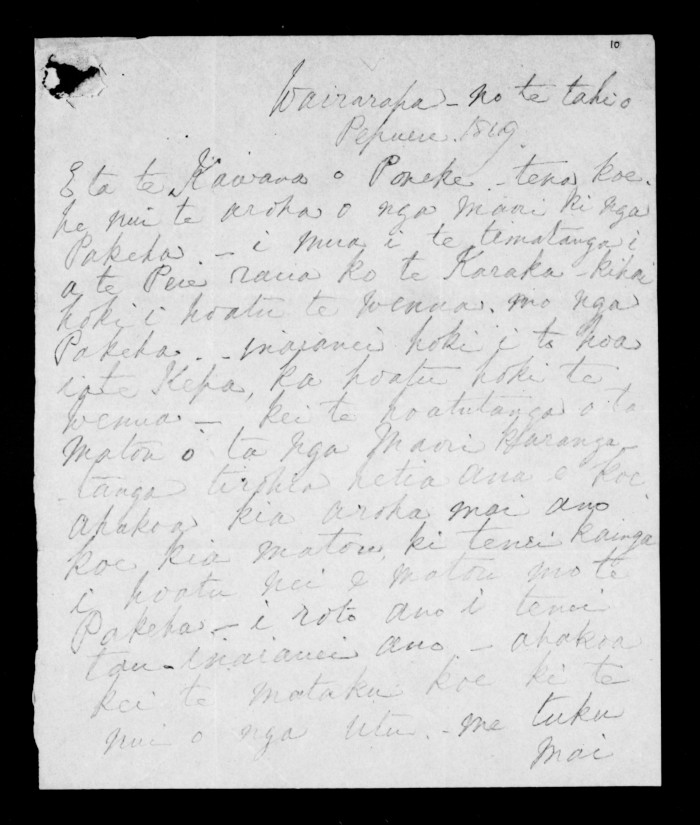 10
Wairarapa - no te tahi o
Pepuere. 1849.
E ta te Kawana o Poneke - tena koe.
he nui te aroha o nga Maori ki nga
Pakeha. - i mua i te timatanga i
a te Pere raua ko te Karaka - kihai
hoki i hoatu te wenua. mo nga
Pakeha. - inaianei hoki i to hoa
i a te Kepa, ka hoatu hoki te
wenua - kei te hoatutanga o ta
matou o ta nga Maori Karanga
-tanga tirohia
ahakoa kia aroha mai ano
koe kia matou, ki tenei kainga
i hoatu nei e matou mo te
Pakeha - i roto ano i tenei
tau - inaianei ano - ahakoa
kei te mataku koe ki te
nui o nga utu. - me tuku
mai